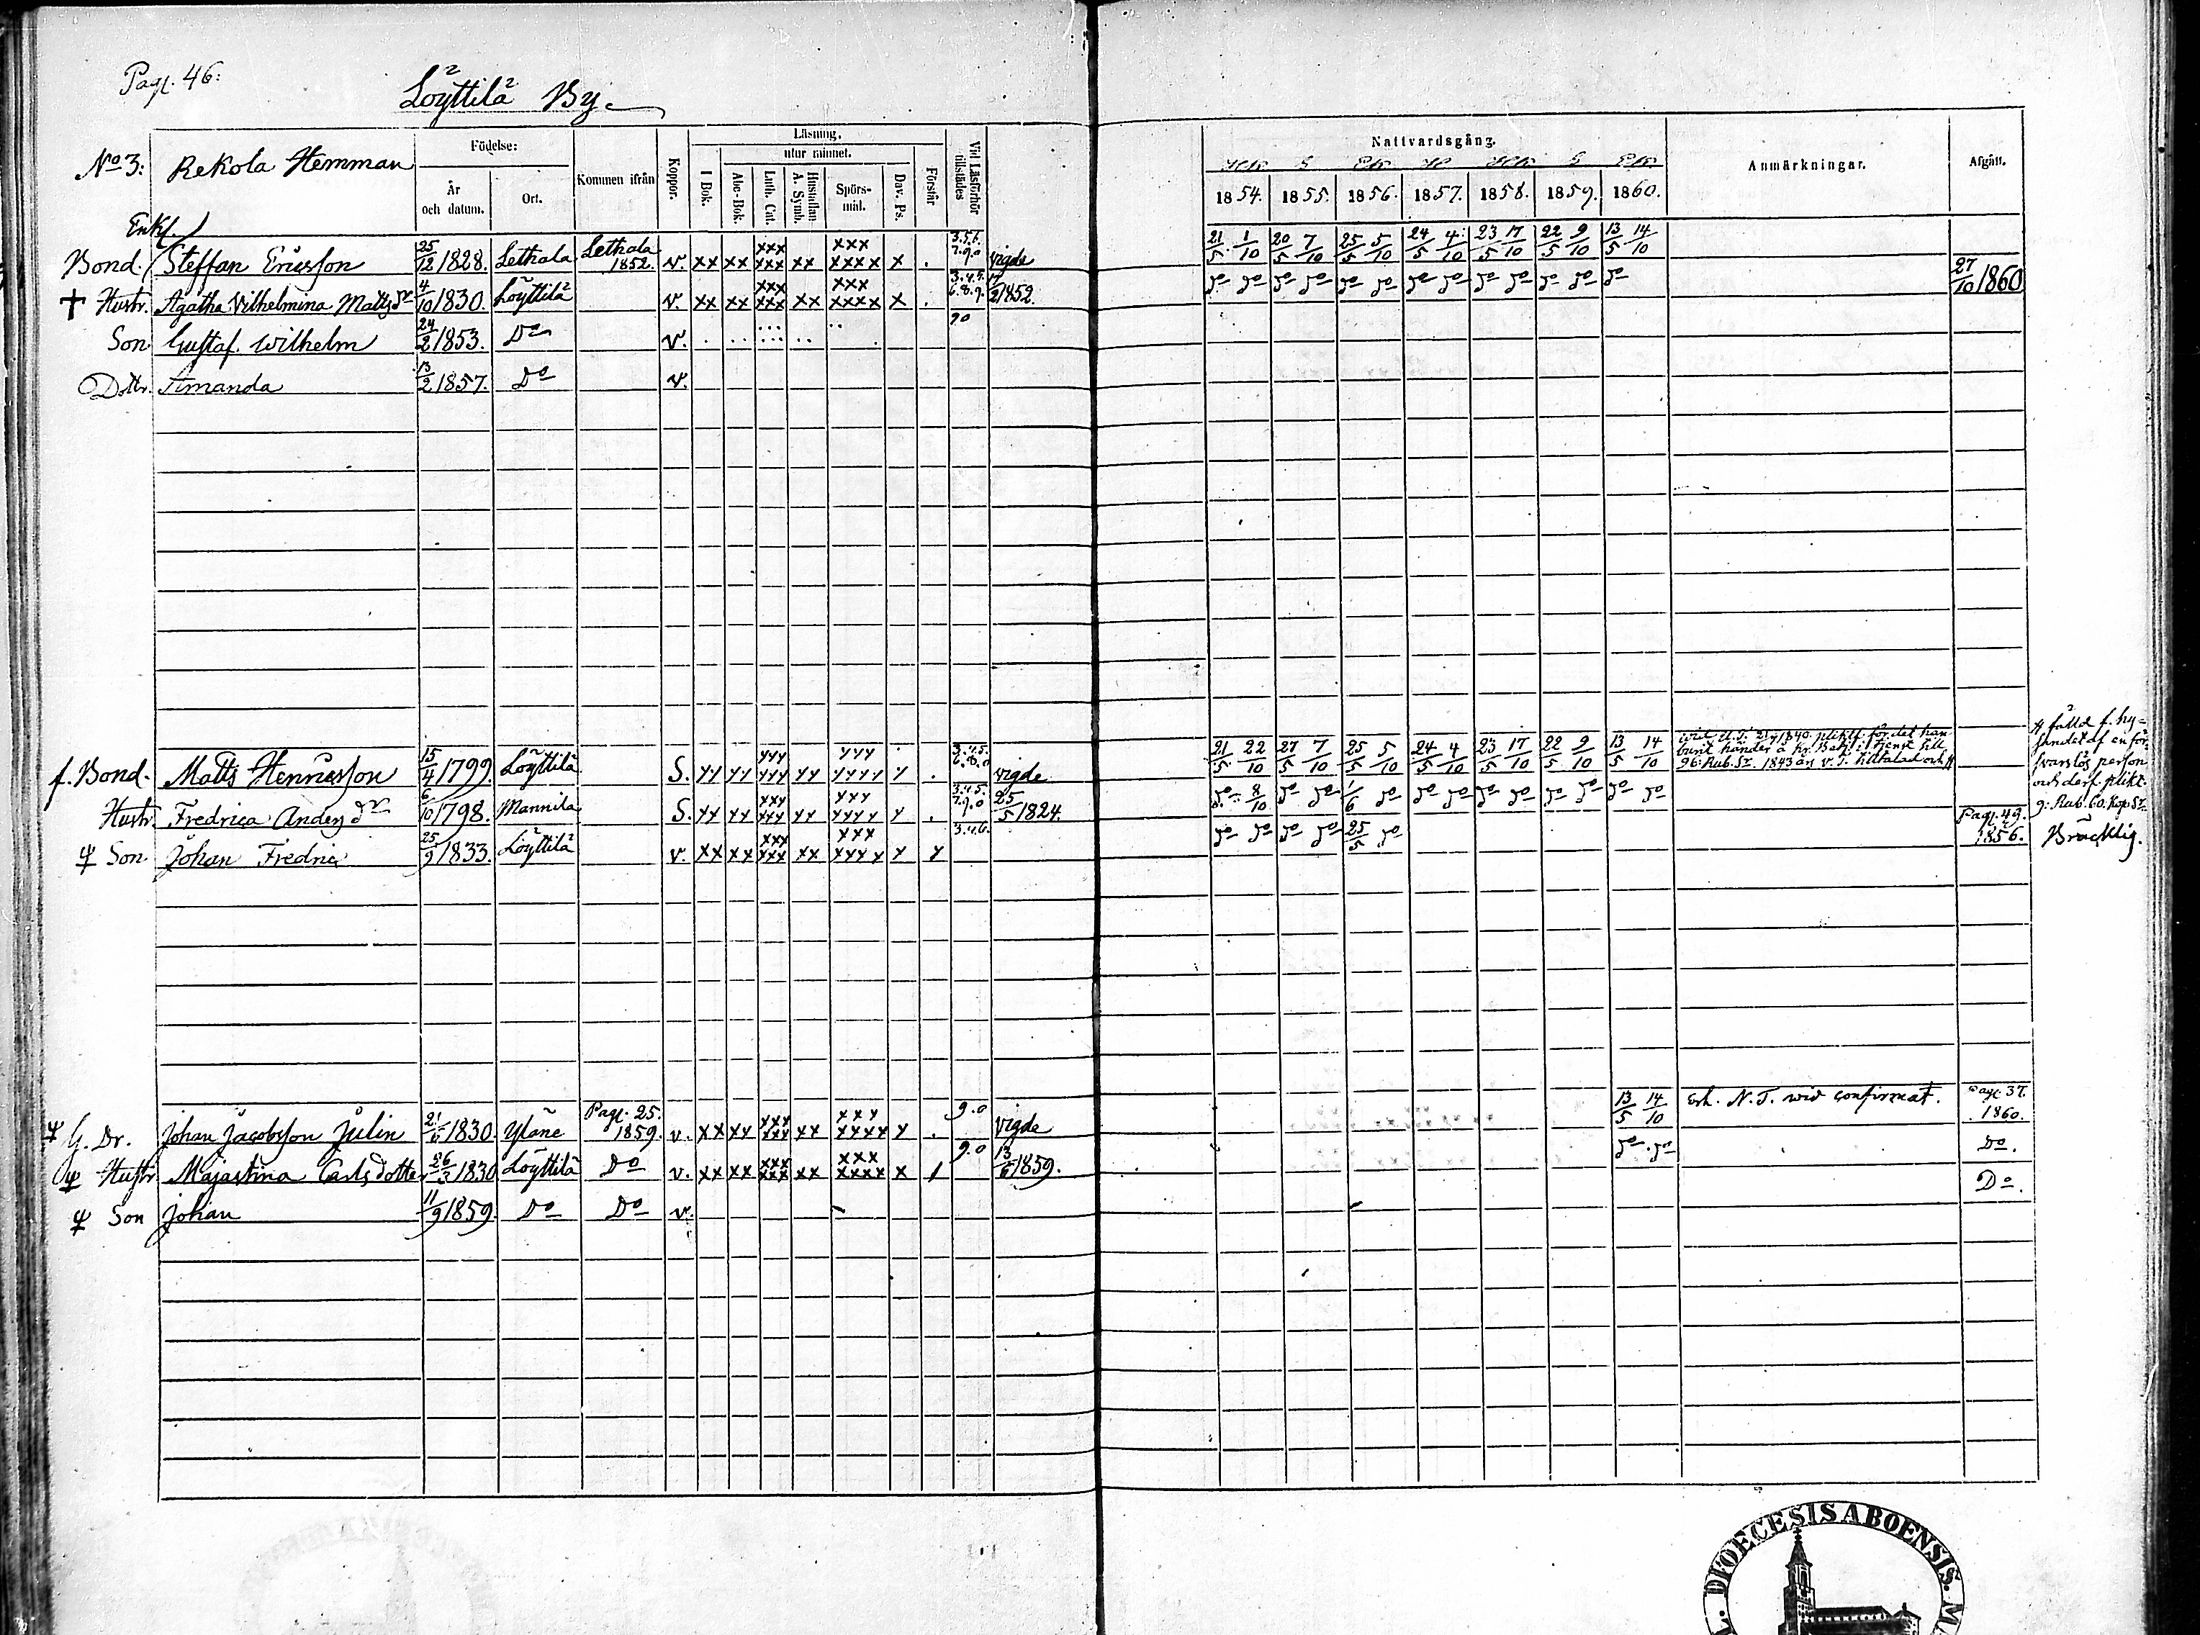 Pag. 46:
Löyttilä By.
No 3: Rekola Hemman
Födelse:
År och datum.
Ort.
Kommen ifrån
Koppor.
Läsning.
utur minnet.
I Bok.
Abc-Bok.
Luth. Cat.
Hustaflan A. Symb.
Spörsmål.
Dav. Ps.
Förstår
Vid Läsförhör tillstädes
Nattvardsgång.
1854. 1855. 1856. 1857. 1858. 1859. 1860.
Anmärkningar.
Afgått.
Enkl.
Bond. Steffan Ericsson 25/12 1828. Lethala Lethala 1852. v. xx xx xxx xxx xx xxx xxxx x . 3.5.6. 7.9.0 vigde 21/5 1/10 20/5 7/10 25/5 5/10 24/5 4/10 23/5 17/10 22/5 9/10 13/5 14/10
† Hustr. Agatha Wilhelmina Matts dr 4/10 1830. Löyttilä v. xx xx xxx xxx xx xxx xxxx x . 3.4.5. 6.8.9. 1852. do do do do do do do do do do do do do 27/10 1860
90
Son Gustaf Wilhelm 24/2 1853. Do v.
Dottr. Amanda 13/2 1857. Do v.
f. Bond. Matts Henricsson 15/4 1799. Löyttilä S. yy yy yyy yyy yy yyy yyyy y . 3.4.5. 6.8.0 vigde 21/5 22/10 27/5 7/10 25/5 5/10 24/5 4/10 23/5 17/10 22/5 9/10 13/5 14/10
1840. pliktf. för det han burit händer å kr. Betj. i tjenst till 96: Rub. Sr. 1843 är v. T. tilltalad och
fälld f. hysandet af en försvarslös person och derf. plikt. 9: Rub. 60. Kop. Sr.
Hustr. Fredrica Anders dr 6/10 1798. Mannila S. yy yy xxx yyy yy yyy yyyy y . 3.4.5. 7.9.0 25/5 1824. do 8/10 do do 1/6 do do do do do do do do do
ψ Son. Johan Fredric 25/9 1833. Löyttilä v. xx xx xxx xxx xx xxx xyyy y y 3.4.6. do do do do 25/5 do Pag. 49. 1856. Bräcklig.
ψ G. Dr. Johan Jacobsson Julin 1830. Yläne Pag. 25. 1859. v. xx xy xxx xxx xx xxy xxxx y . 9.0 vigde 13/5 14/10 Erh. N. T. wid confirmat. Pag. 37. 1860.
ψ Hustr Majastina Carlsdotter 26/3 1830 Löyttilä Do v. xx xx xxx xxx xx xxx xxxx x / 9.0 13/6 1859. do do Do.
ψ Son Johan 11/9 1859. Do Do v. Do.
DIOECESIS ABOENSIS.